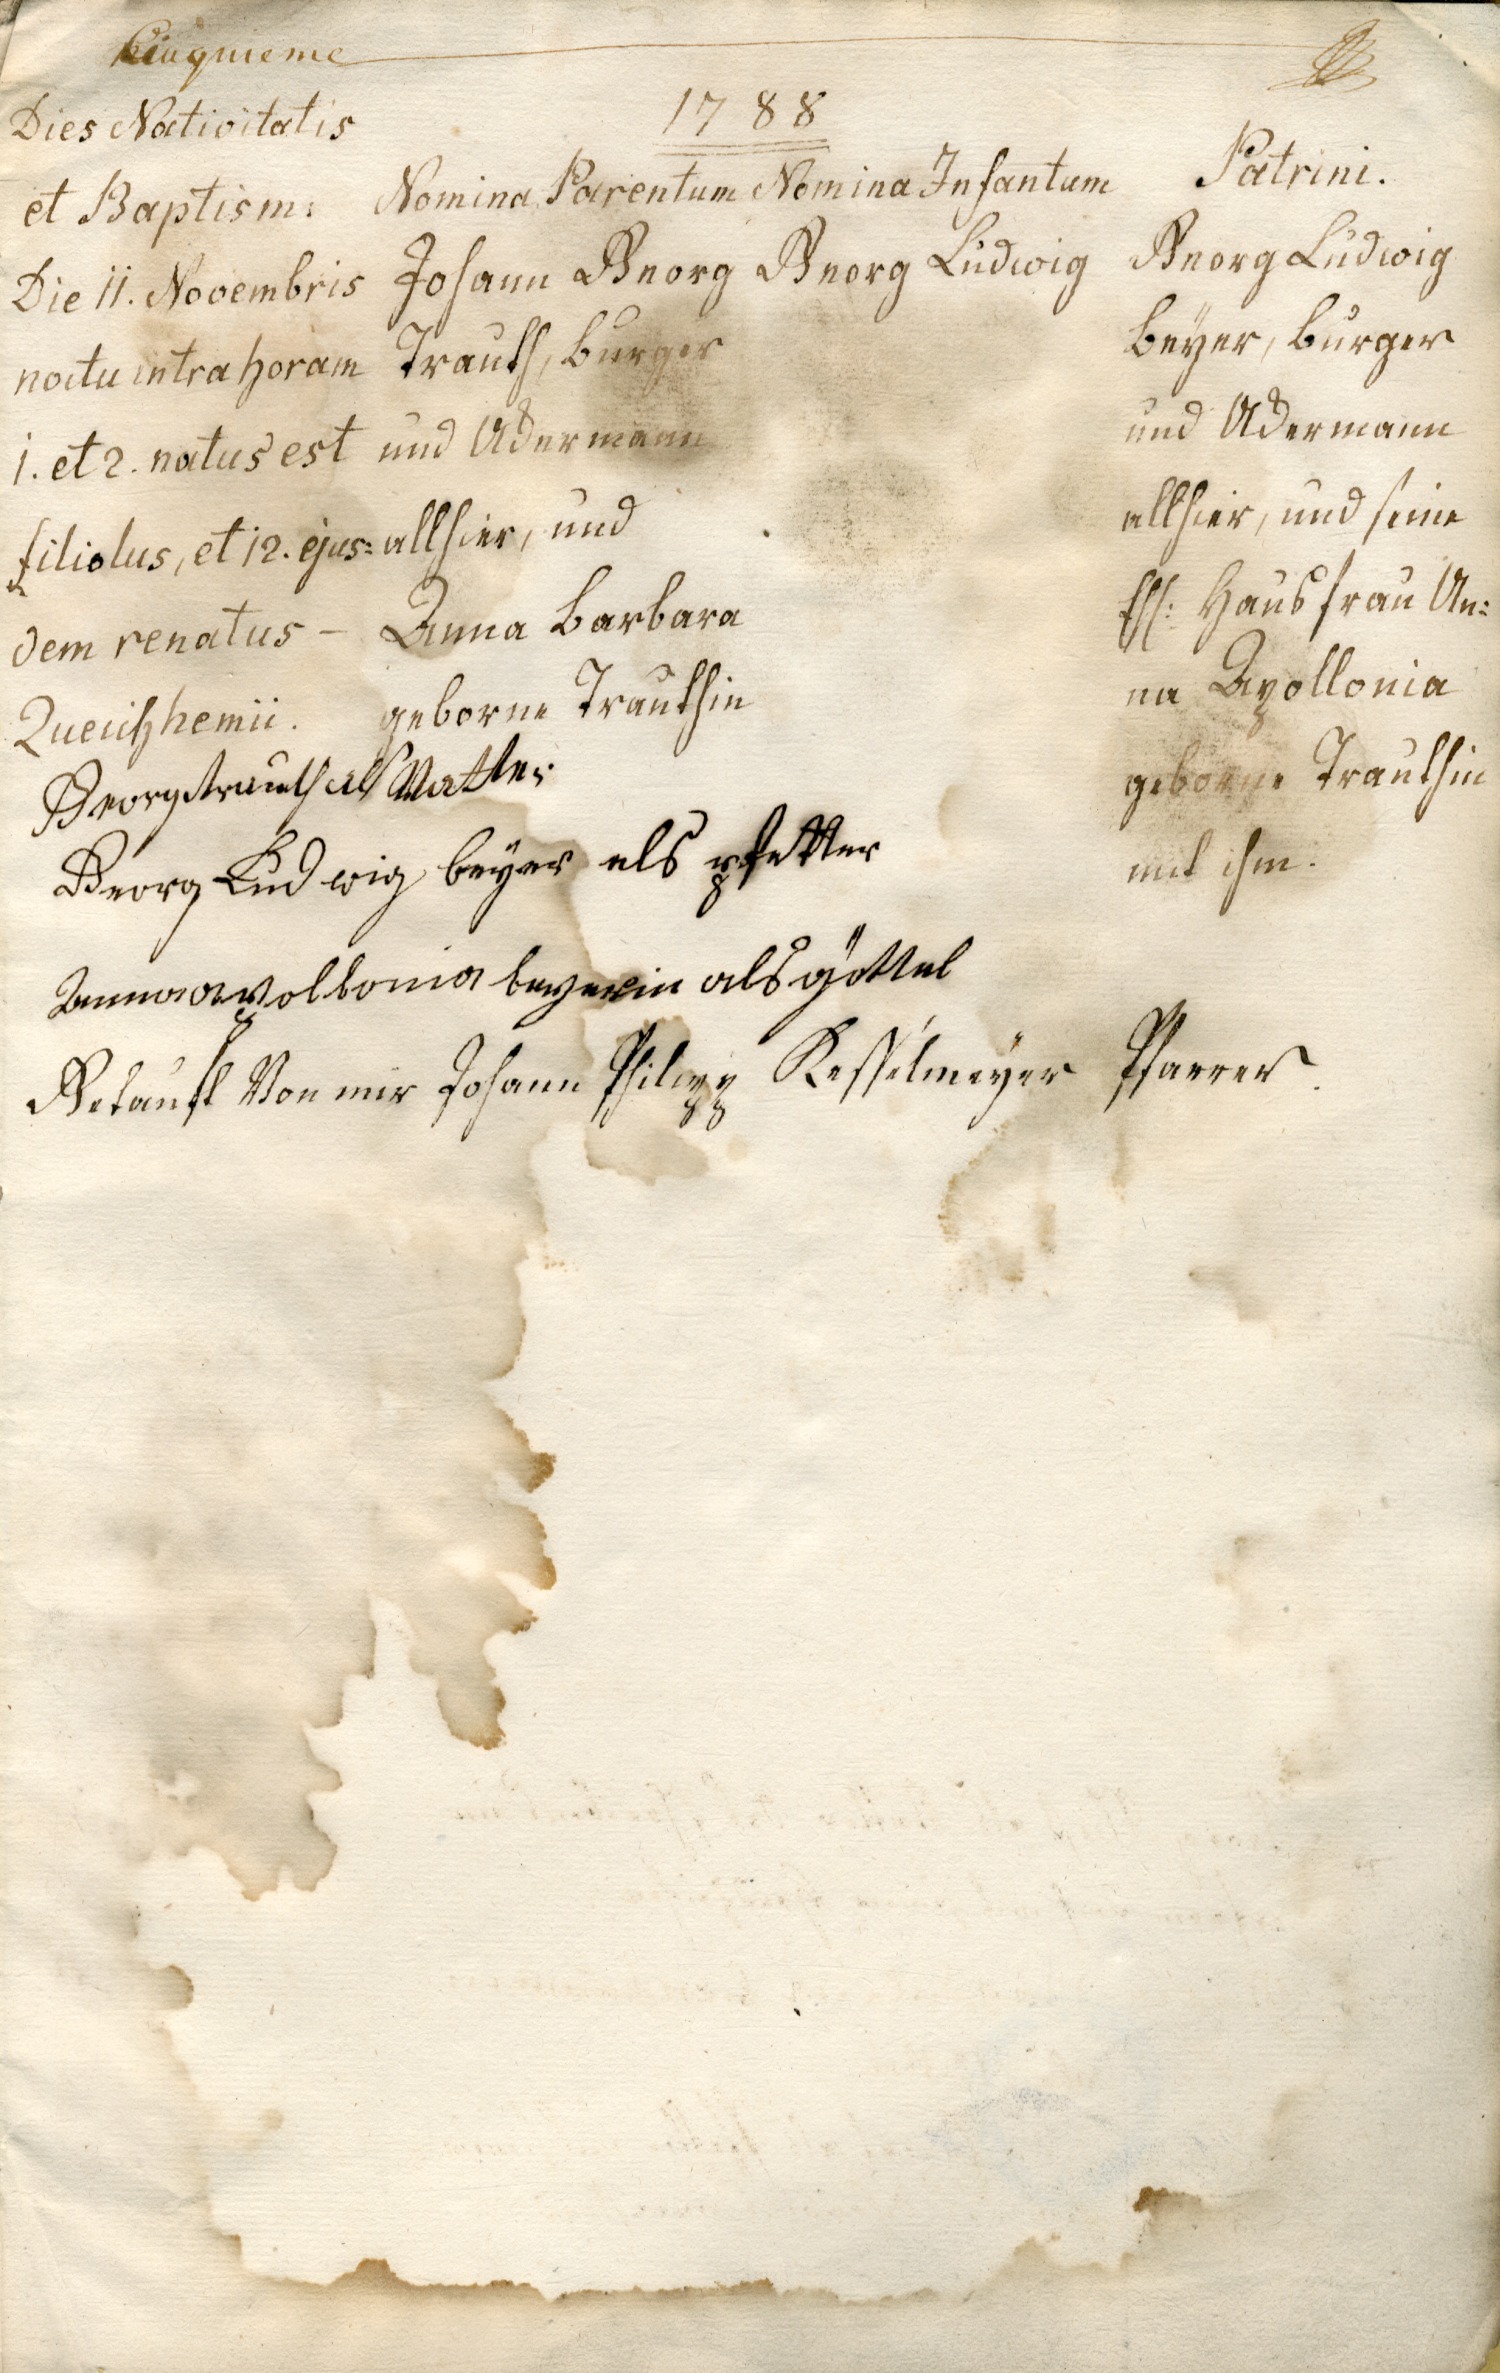 Cinquieme
1788
Dies Nativitatis
et Baptism:
Die 11. Novembris
noctu intra horam
1. et 2. natus est
filiolus, et 12. ejus=
dem renatus –
Queichhemii.
Nomina Parentum
Johann Georg
Trauth, burger
und Ackermann
allhier, und
Anna barbara
geborne Trauthin
Nomina Infantum
Georg Ludwig
Patrini.
Georg Ludwig
beÿer, burger
und Ackermann
allhier, und seine
Ehl: Hausfrau An=
na Apollonia
geborne Trauthin
mit ihm.
Georg trauth als Vatter
Georg Ludwig beÿer als pfetter
Anna apollonia beyerin als göttel
Getauft Von mir Johann Philipp Kesselmeÿer Pfarrer.